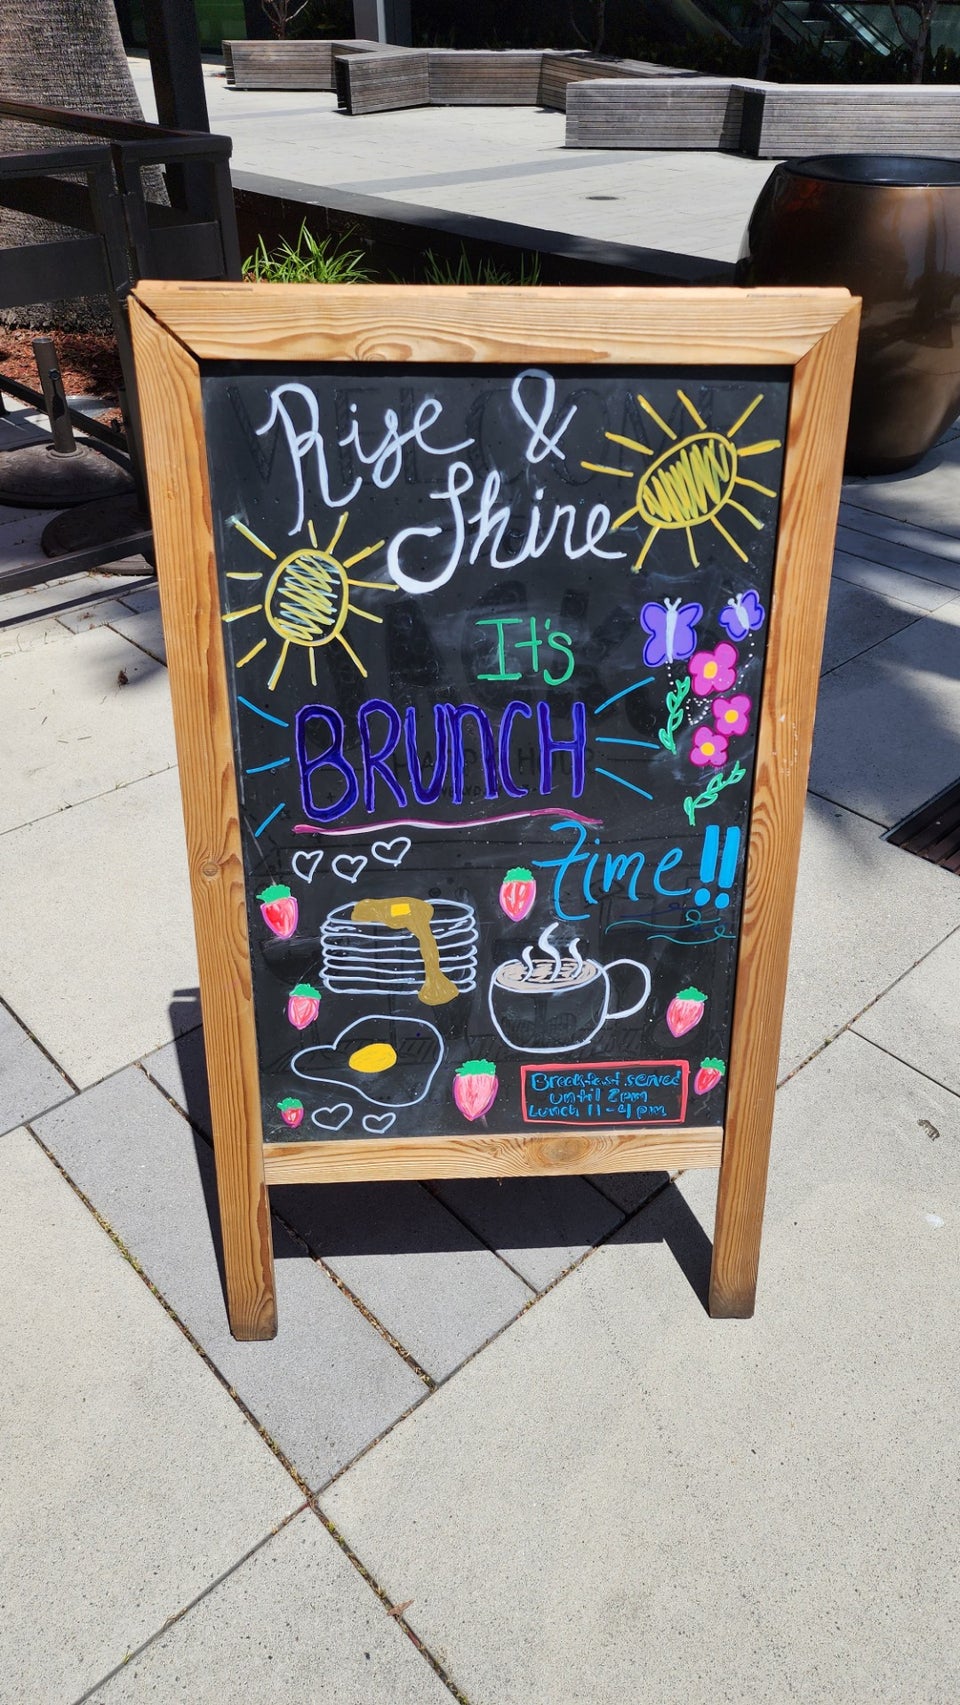 Rise &
Shine
It's
BRUNCH
Time!!
Breakfast served
until 2pm
Lunch 11-4pm